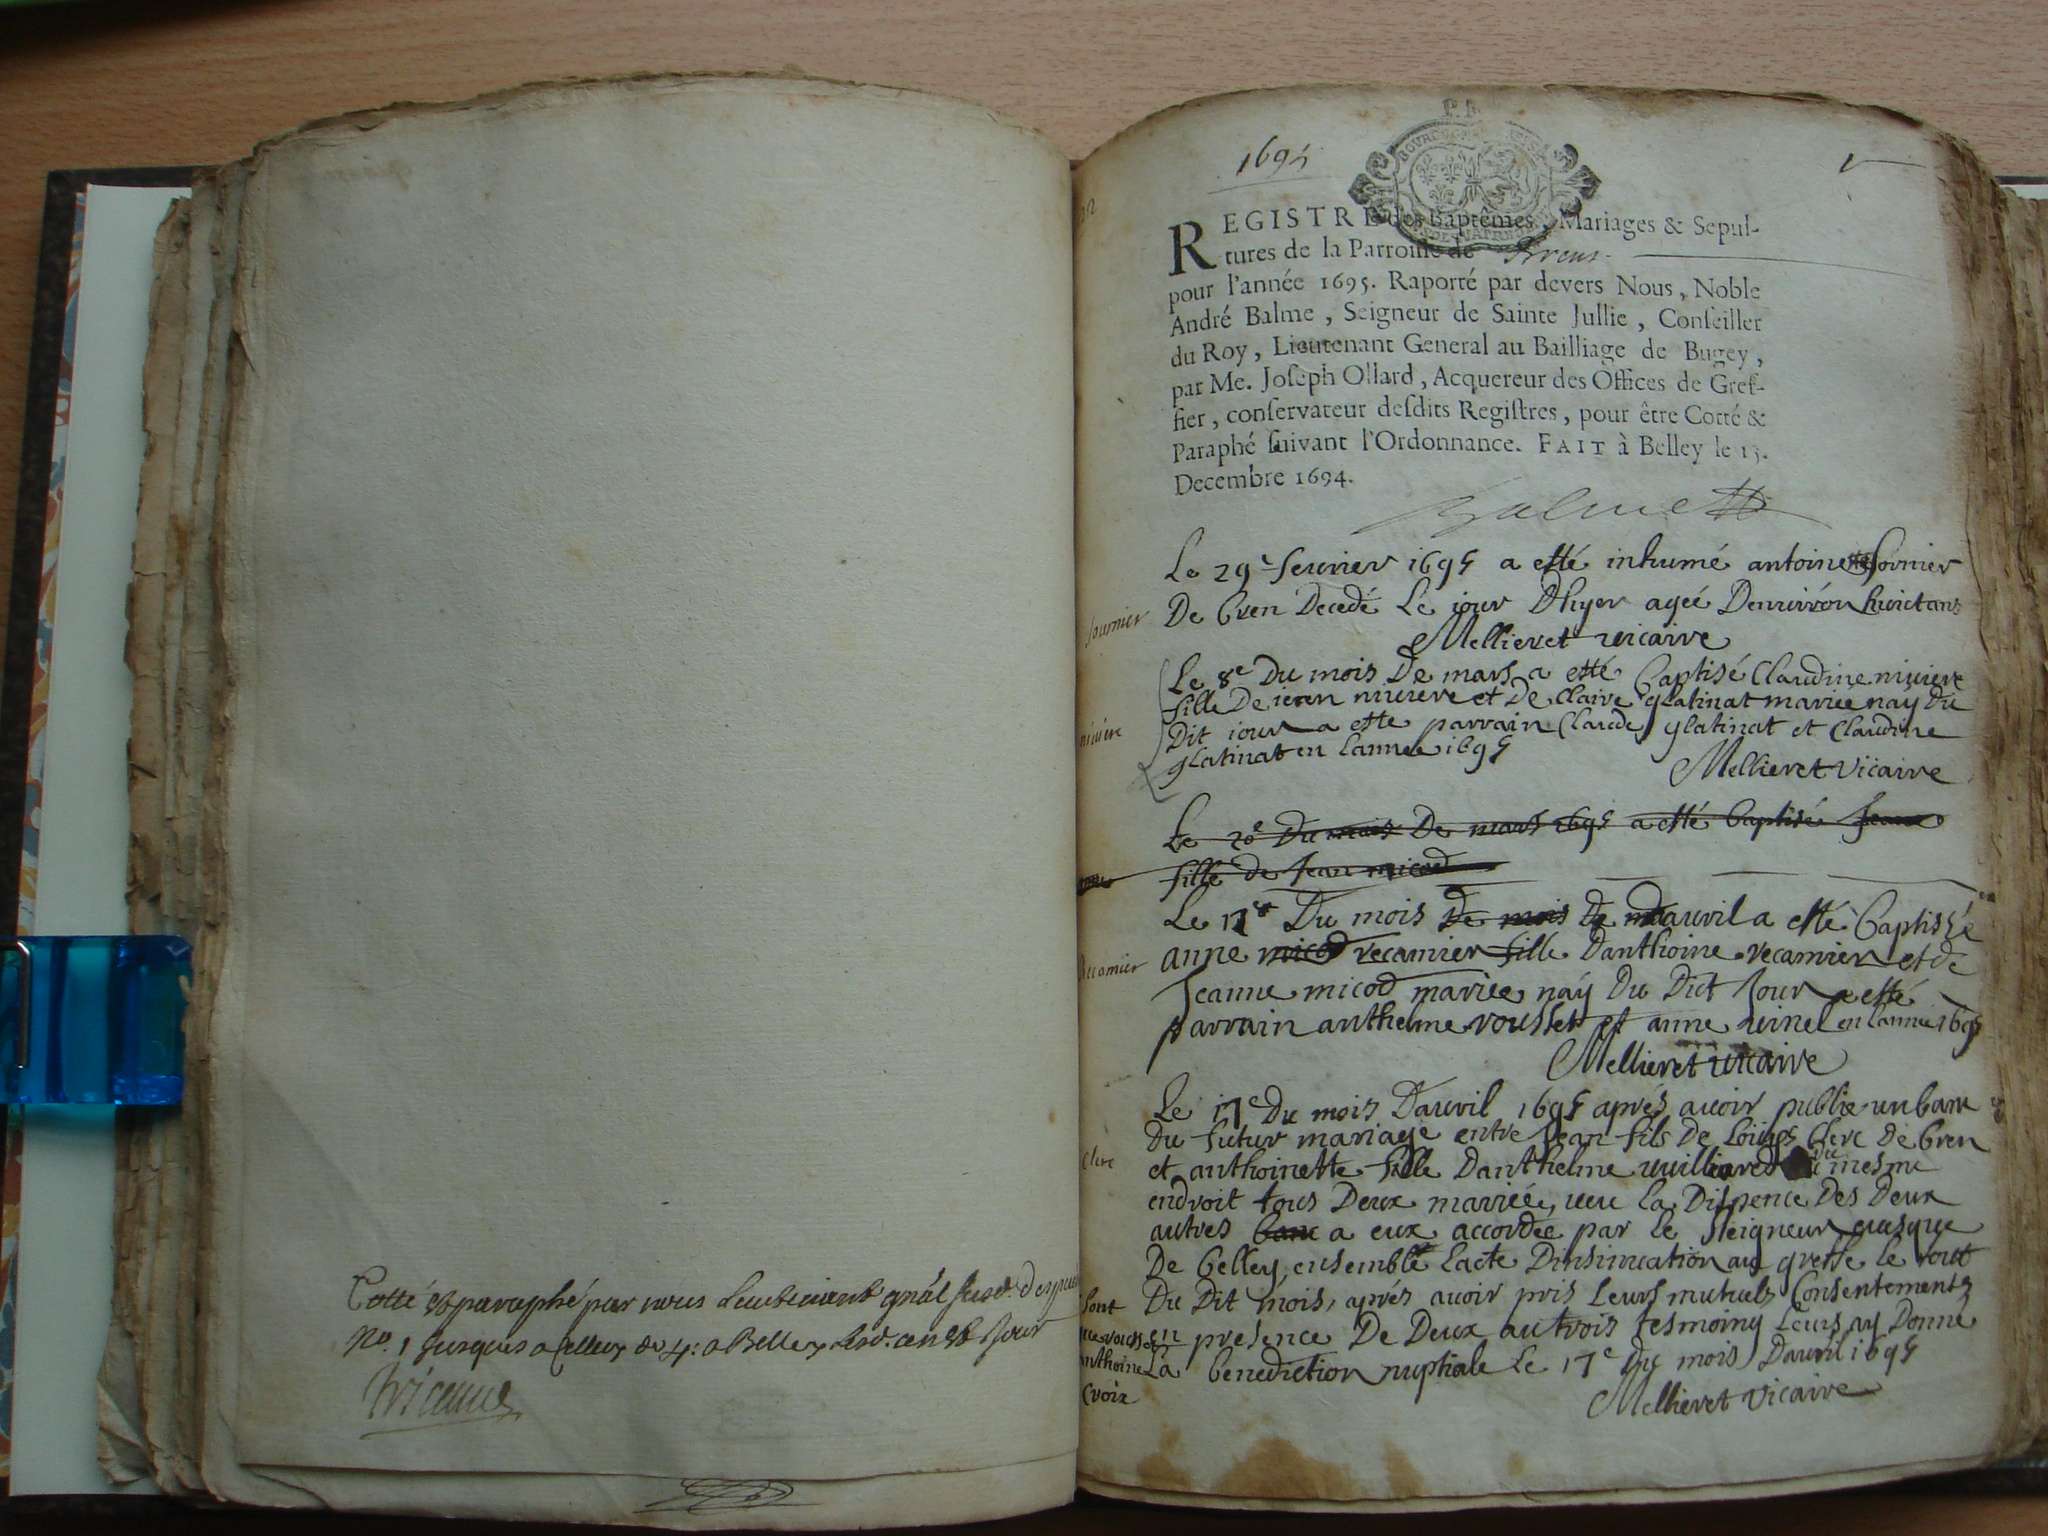 Cotté et paraphé par nous Lieutenant gnâl susd. Depuis
No. 1 Jusques a Celluy de 4: a Belley Lesd. an et Jour
1695
REGISTRE des Baptêmes, Mariages & Sepul-
tures de la Parroisse de
pour l'année 1695. Raporté par devers Nous, Noble
André Balme, Seigneur de Sainte Jullie, Conseiller
du Roy, Lieutenant General au Bailliage de Bugey,
par Me. Joseph Ollard, Acquereur des Offices de Gref-
fier, conservateur desdits Registres, pour être Cotté &
Paraphé suivant l'Ordonnance. FAIT à Belley le 13.
Decembre 1694.
Balme
Le 29e feurier 1695 a esté inhumé antoinette fornier
De bren Decedé Le jour Dhyer ageé Denvirron huict ans
fournier
Mellieret vicaire
Le 8e Du mois De mars a esté baptisé Claudine niuiere
fille De jean niuiere et De Claire glatinat mariee nay du
Dit jour a este parrain Claude glatinat et Claudine
niuiere
glatinat en Lannee 1695
Mellieret vicaire
Le 20e Du mois De mars 1695 a esté baptisé Jeane
fille de Jean micod
Le 17e Du mois de mois de dauril a esté baptisée
anne micod recamier fille Danthoine recamier et de
Recamier
Jeanne micod mariee nay Du Dict Jour a esté
parrain anthelme rousset et anne uinel en Lannee 1695
Mellieret vicaire
Le 17e Du mois Dauril 1695 aprés auoir publie un banc
Du futur mariage entre Jean fils De Loüys Clerc de bren
Clerc
et anthoinette fille Danthelme uuilliered du mesme
endroit tous Deux mariée, ueu La Dispence Des Deux
autres banc a eux accordée par Le seigneur euesque
De belley, ensemble Lacte Dinsinuation au greffe Le tout
Du Dit mois, aprés auoir pris Leurs mutuels Consentements
en presence De Deux au trois tesmoing Leurs ay Donné
La benediction nuptiale Le 17e du mois Dauril 1695
Sont
anthoine
Croix
Mellieret vicaire